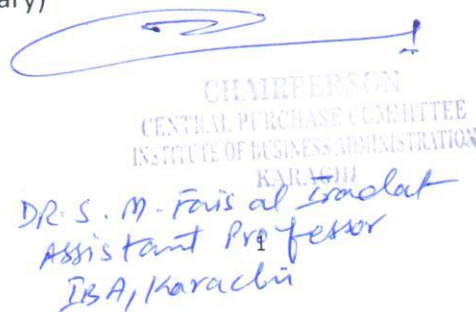 ary)
CHAIRPERSON
CENTRAL PURCHASE COMMITTEE
INSTITUTE OF BUSINESS ADMINISTRATION
KARACHI
DR. S. M. Faisal Iradat
Assistant Professor
1
IBA, Karachi